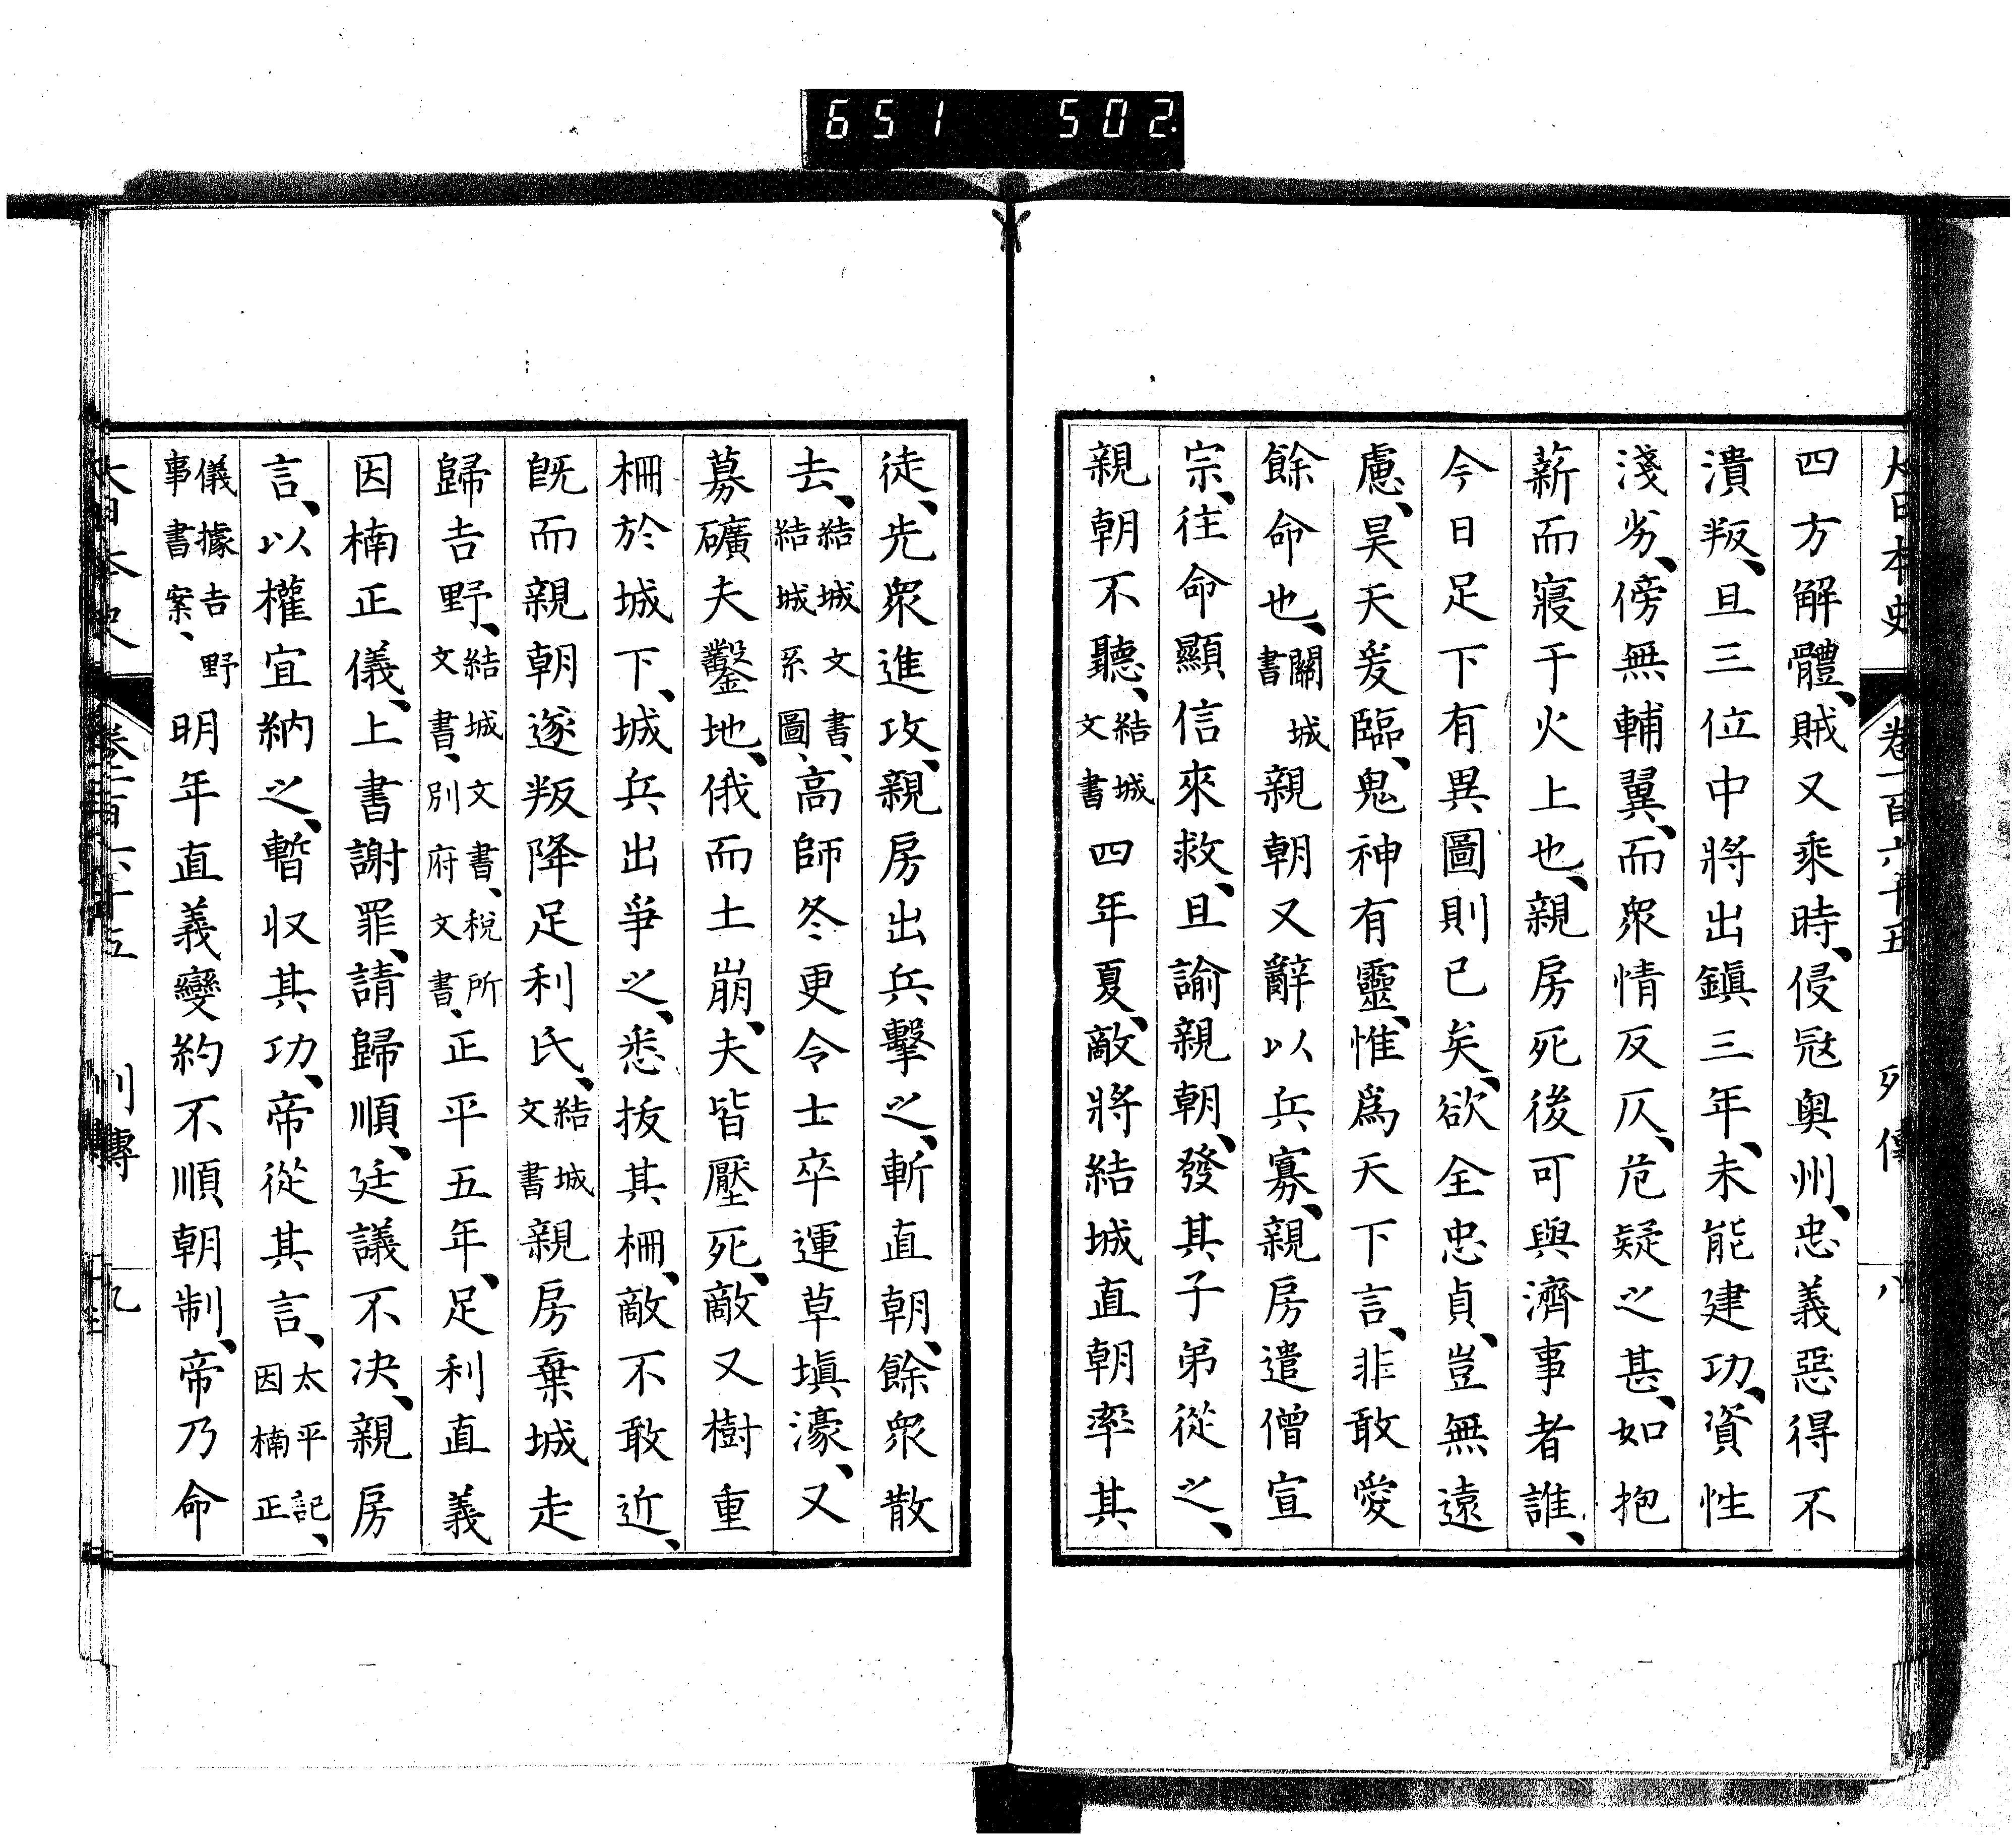 651 502
大日本史 卷一百六十五 列傳 八
四方解體、賊又乘時、侵冦奥州、忠義惡得不
潰叛、且三位中將出鎭三年、未能建功、資性
淺劣、傍無輔翼、而衆情反仄、危疑之甚、如抱
薪而寢于火上也、親房死後可與濟事者誰、
今日足下有異圖則已矣、欲全忠貞、豈無遠
慮、昊天爰臨、鬼神有靈、惟爲天下言、非敢愛
餘命也、關城書親朝又辭以兵寡、親房遣僧宣
宗、往命顯信來救、且諭親朝、發其子弟從之、
親朝不聽、結城文書四年夏、敵將結城直朝率其
徒、先衆進攻、親房出兵擊之、斬直朝、餘衆散
去、結城文書、結城系圖、高師冬更令士卒運草塡濠、又
募礦夫鑿地、俄而土崩、夫皆壓死、敵又樹重
柵於城下、城兵出爭之、悉拔其柵、敵不敢近、
既而親朝遂叛降足利氏、結城文書親房棄城走
歸吉野、結城文書、文書、別府文書、税所文書、正平五年、足利直義
因楠正儀、上書謝罪、請歸順、廷議不決、親房
言、以權宜納之、暫収其功、帝從其言、太平記、因楠正
儀據吉野事書案、明年直義變約不順朝制、帝乃命
大日本史 卷一百六十五 列傳 九